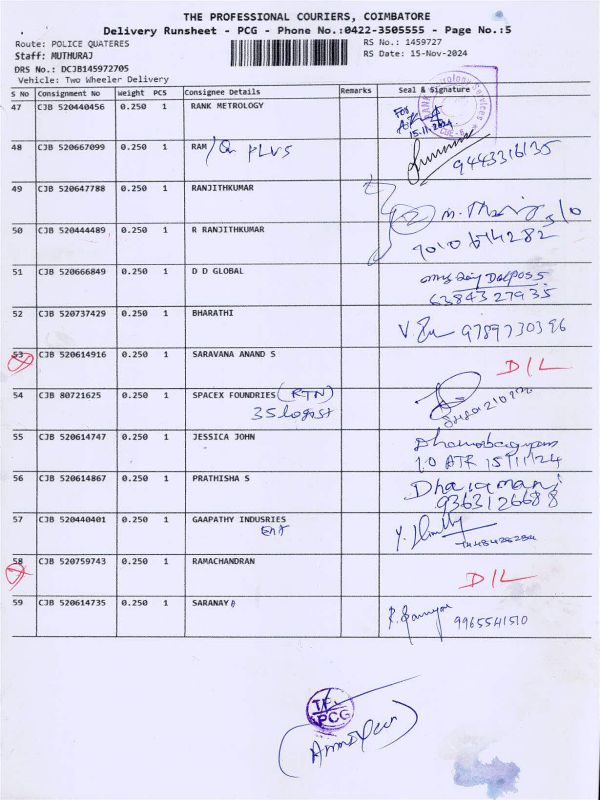 THE PROFESSIONAL COURIERS, COIMBATORE
Delivery Runsheet - PCG - Phone No.:0422-3505555 - Page No.:5
Route: POLICE QUATERES
RS No.: 1459727
Staff: MUTHURAJ
RS Date: 15-Nov-2024
DRS No.: DCJB145972705
Vehicle: Two Wheeler Delivery
S No Consignment No Weight PCS Consignee Details Remarks Seal & Signature
47 CJB 520440456 0.250 1 RANK METROLOGY For
15.11.2024
48 CJB 520667099 0.250 1 RAM PLUS 9443316135
49 CJB 520647788 0.250 1 RANJITHKUMAR
50 CJB 520444489 0.250 1 R RANJITHKUMAR
51 CJB 520666849 0.250 1 D D GLOBAL
6384327935
52 CJB 520737429 0.250 1 BHARATHI 9789730396
53 CJB 520614916 0.250 1 SARAVANA ANAND S D/L
54 CJB 80721625 0.250 1 SPACEX FOUNDRIES (RTN)
35 logist
55 CJB 520614747 0.250 1 JESSICA JOHN
15/11/24
56 CJB 520614867 0.250 1 PRATHISHA S Dhaiamani
9363126688
57 CJB 520440401 0.250 1 GAAPATHY INDUSRIES
58 CJB 520759743 0.250 1 RAMACHANDRAN D/L
59 CJB 520614735 0.250 1 SARANAY 9965541510
TPC
PCG